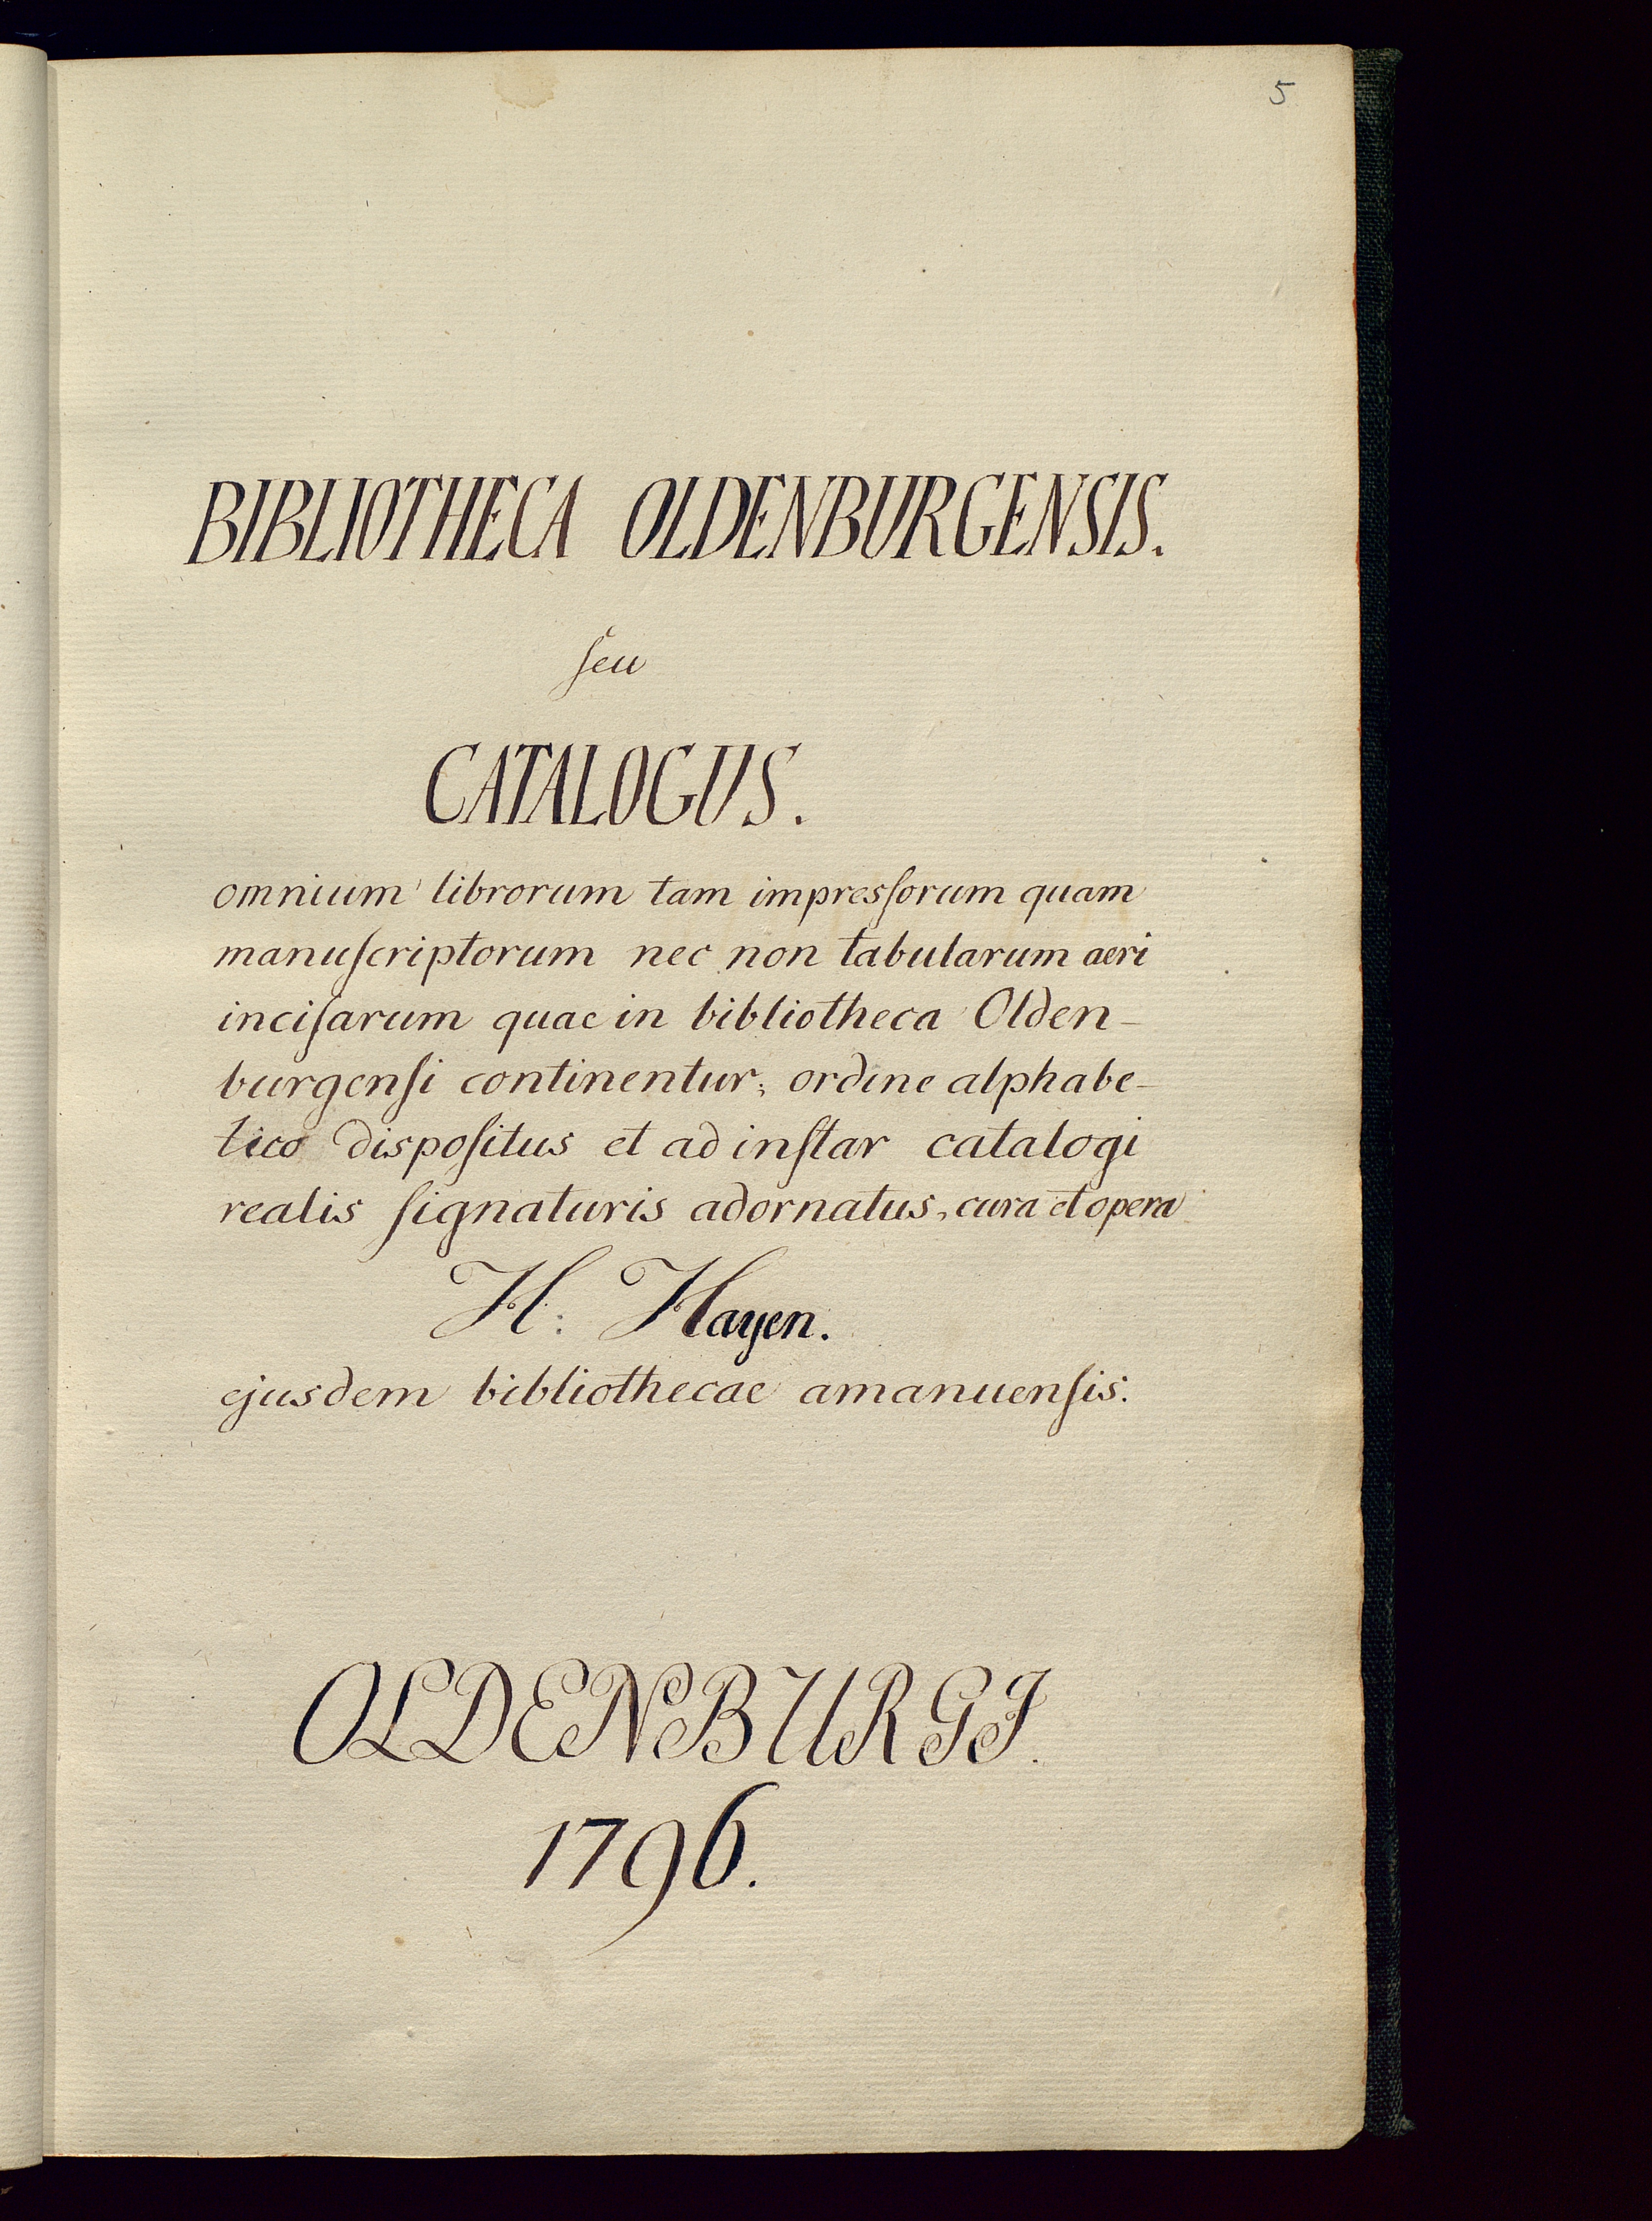 5
BIBLIOTHECA OLDENBURGENSIS.
ſeu
CATALOGUS.
omnium librorum tam impresſorum quam
manuſcriptorum nec non tabularum aeri
inciſarum quae in bibliotheca Olden-
burgenſi continentur, ordine alphabe-
tico dispoſitus et ad inſtar catalogi
realis ſignaturis adornatus, cura et opera
H: Hayen.
ejusdem bibliothecae amanuenſis.
OLDENBURGI.
1796.